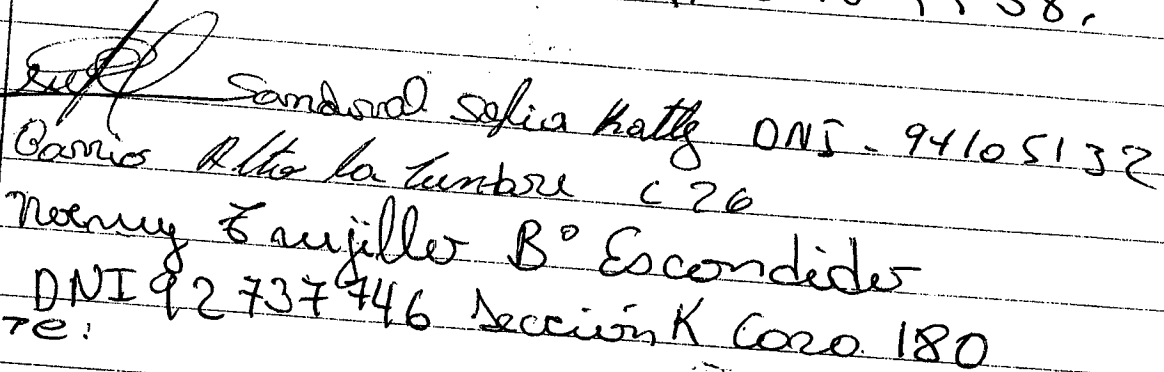 58.
Sandoval Sofia Katty DNI - 94105132
Barrio Alto la Cumbre C 26
Noemy Trujillo B° Escondido
DNI 92737746 Sección K Casa 180
Te: